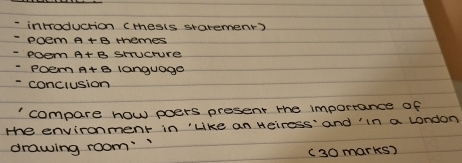 - introduction (thesis statement)
- poem A + B themes
- poem A + B structure
- Poem A + B language
- conclusion
'compare how poets present the importance of
the environment in 'Like an Heiress' and 'in a London
drawing room''
(30 marks)